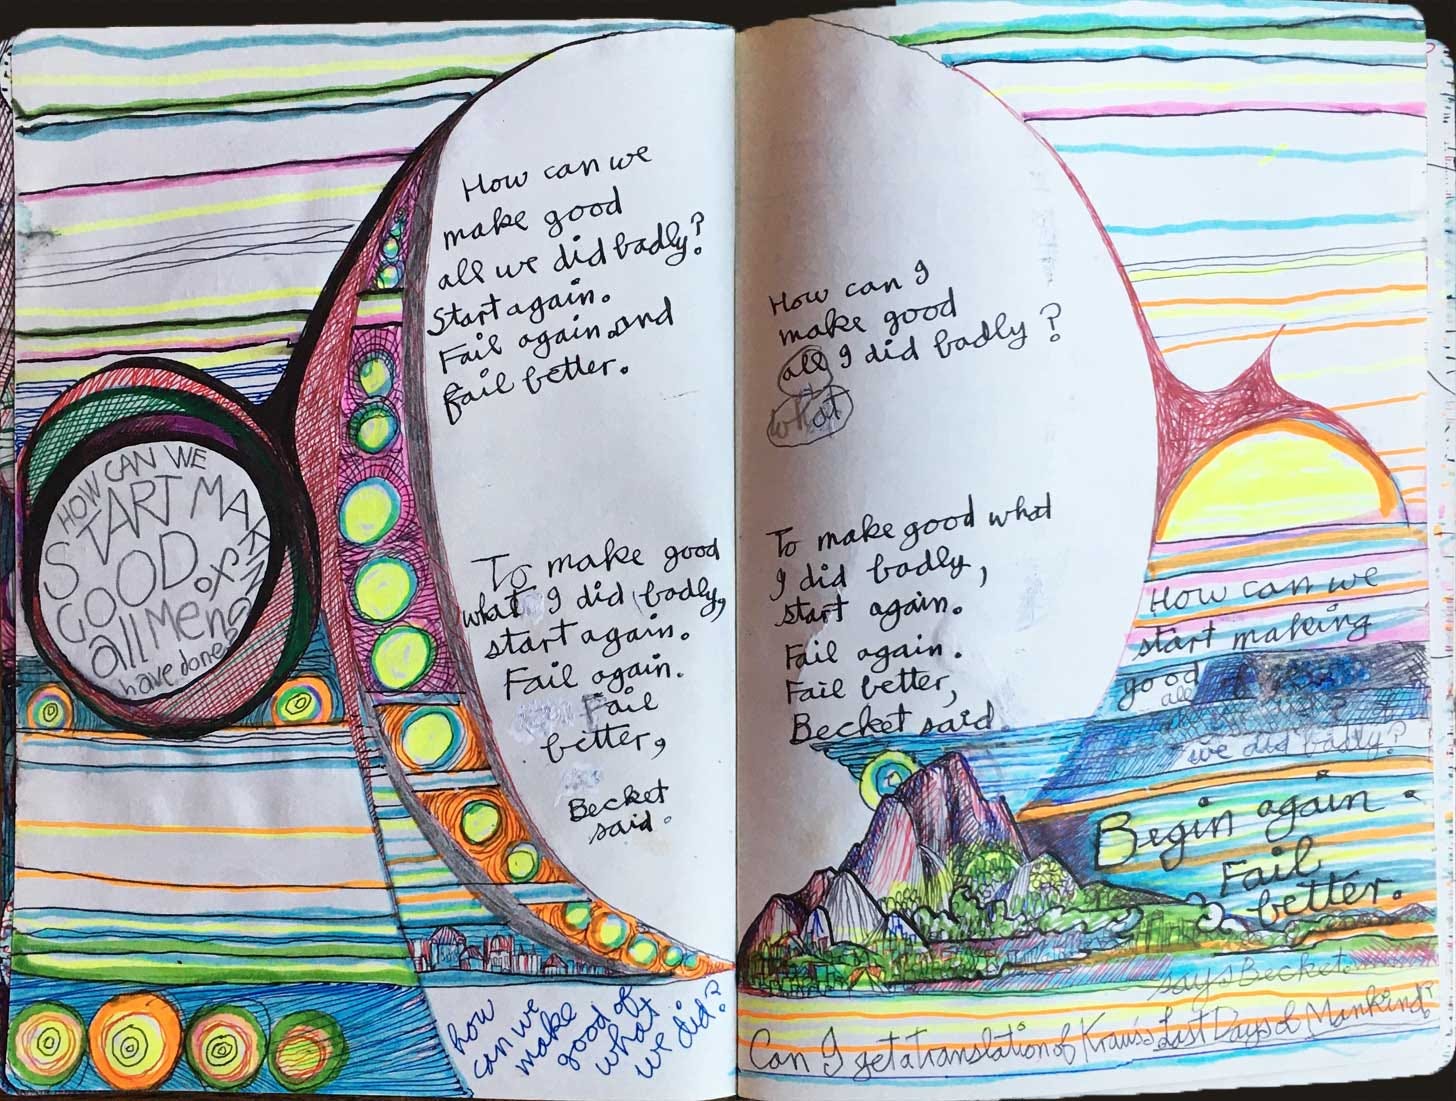 HOW CAN WE
START MAKING
GOOD OF
all Men
have done
How can we
make good
all we did badly?
Start again.
Fail again and
fail better.
To make good
what I did badly,
start again.
Fail again.
Fail
better,
Becket
said.
how
can we
make
good of
what
we did?
How can I
make good
all I did badly?
what
To make good what
I did badly,
start again.
Fail again.
Fail better,
Becket said
How can we
start making
good
all
we did badly?
Begin again.
Fail
better.
says Becket.
Can I get a translation of Kraus's Last Days of Mankind?